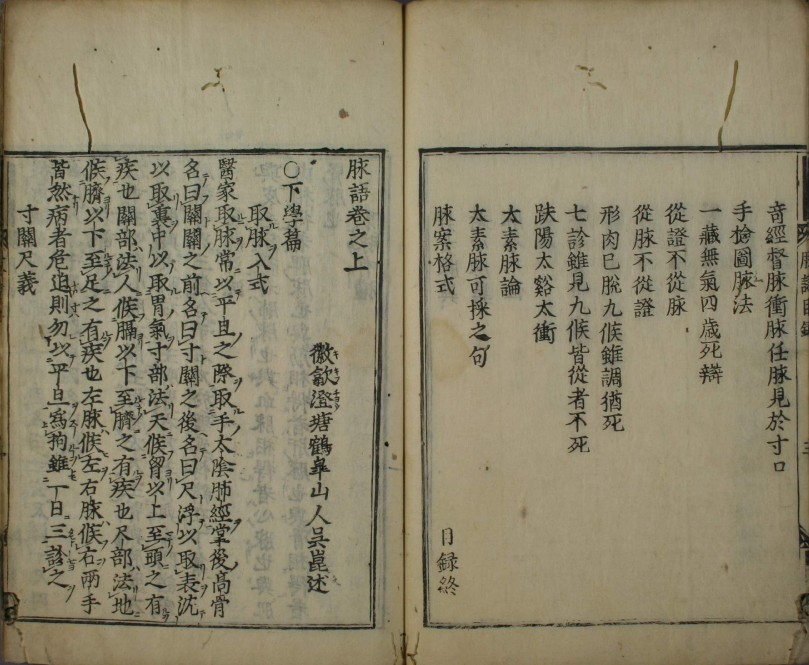 奇經督脉衝脉任脉見於寸口
手撿圖脉法
一藏無氣四歲死辯
從證不從脉
從脉不從證
形肉已脫九候雖調猶死
七診雖見九候皆從者不死
趺陽太谿太衝
太素脉論
太素脉可採之句
脉案格式
目錄終
脉語卷之上
徽歙澄塘鶴皐山人吳崑述
○下學篇
取脉入式
醫家取脉常以平旦之際取手太陰肺經掌後高骨
名曰關關之前名曰寸關之後名曰尺浮以取表沈
以取裏中以取胃氣寸部法天候胷以上至頭之有
疾也關部法人候膈以下至臍之有疾也尺部法地
候臍以下至足之有疾也左脉候左右脉候右兩手
皆然病者危迫則勿以平旦爲拘雖一日三診之
寸關尺義